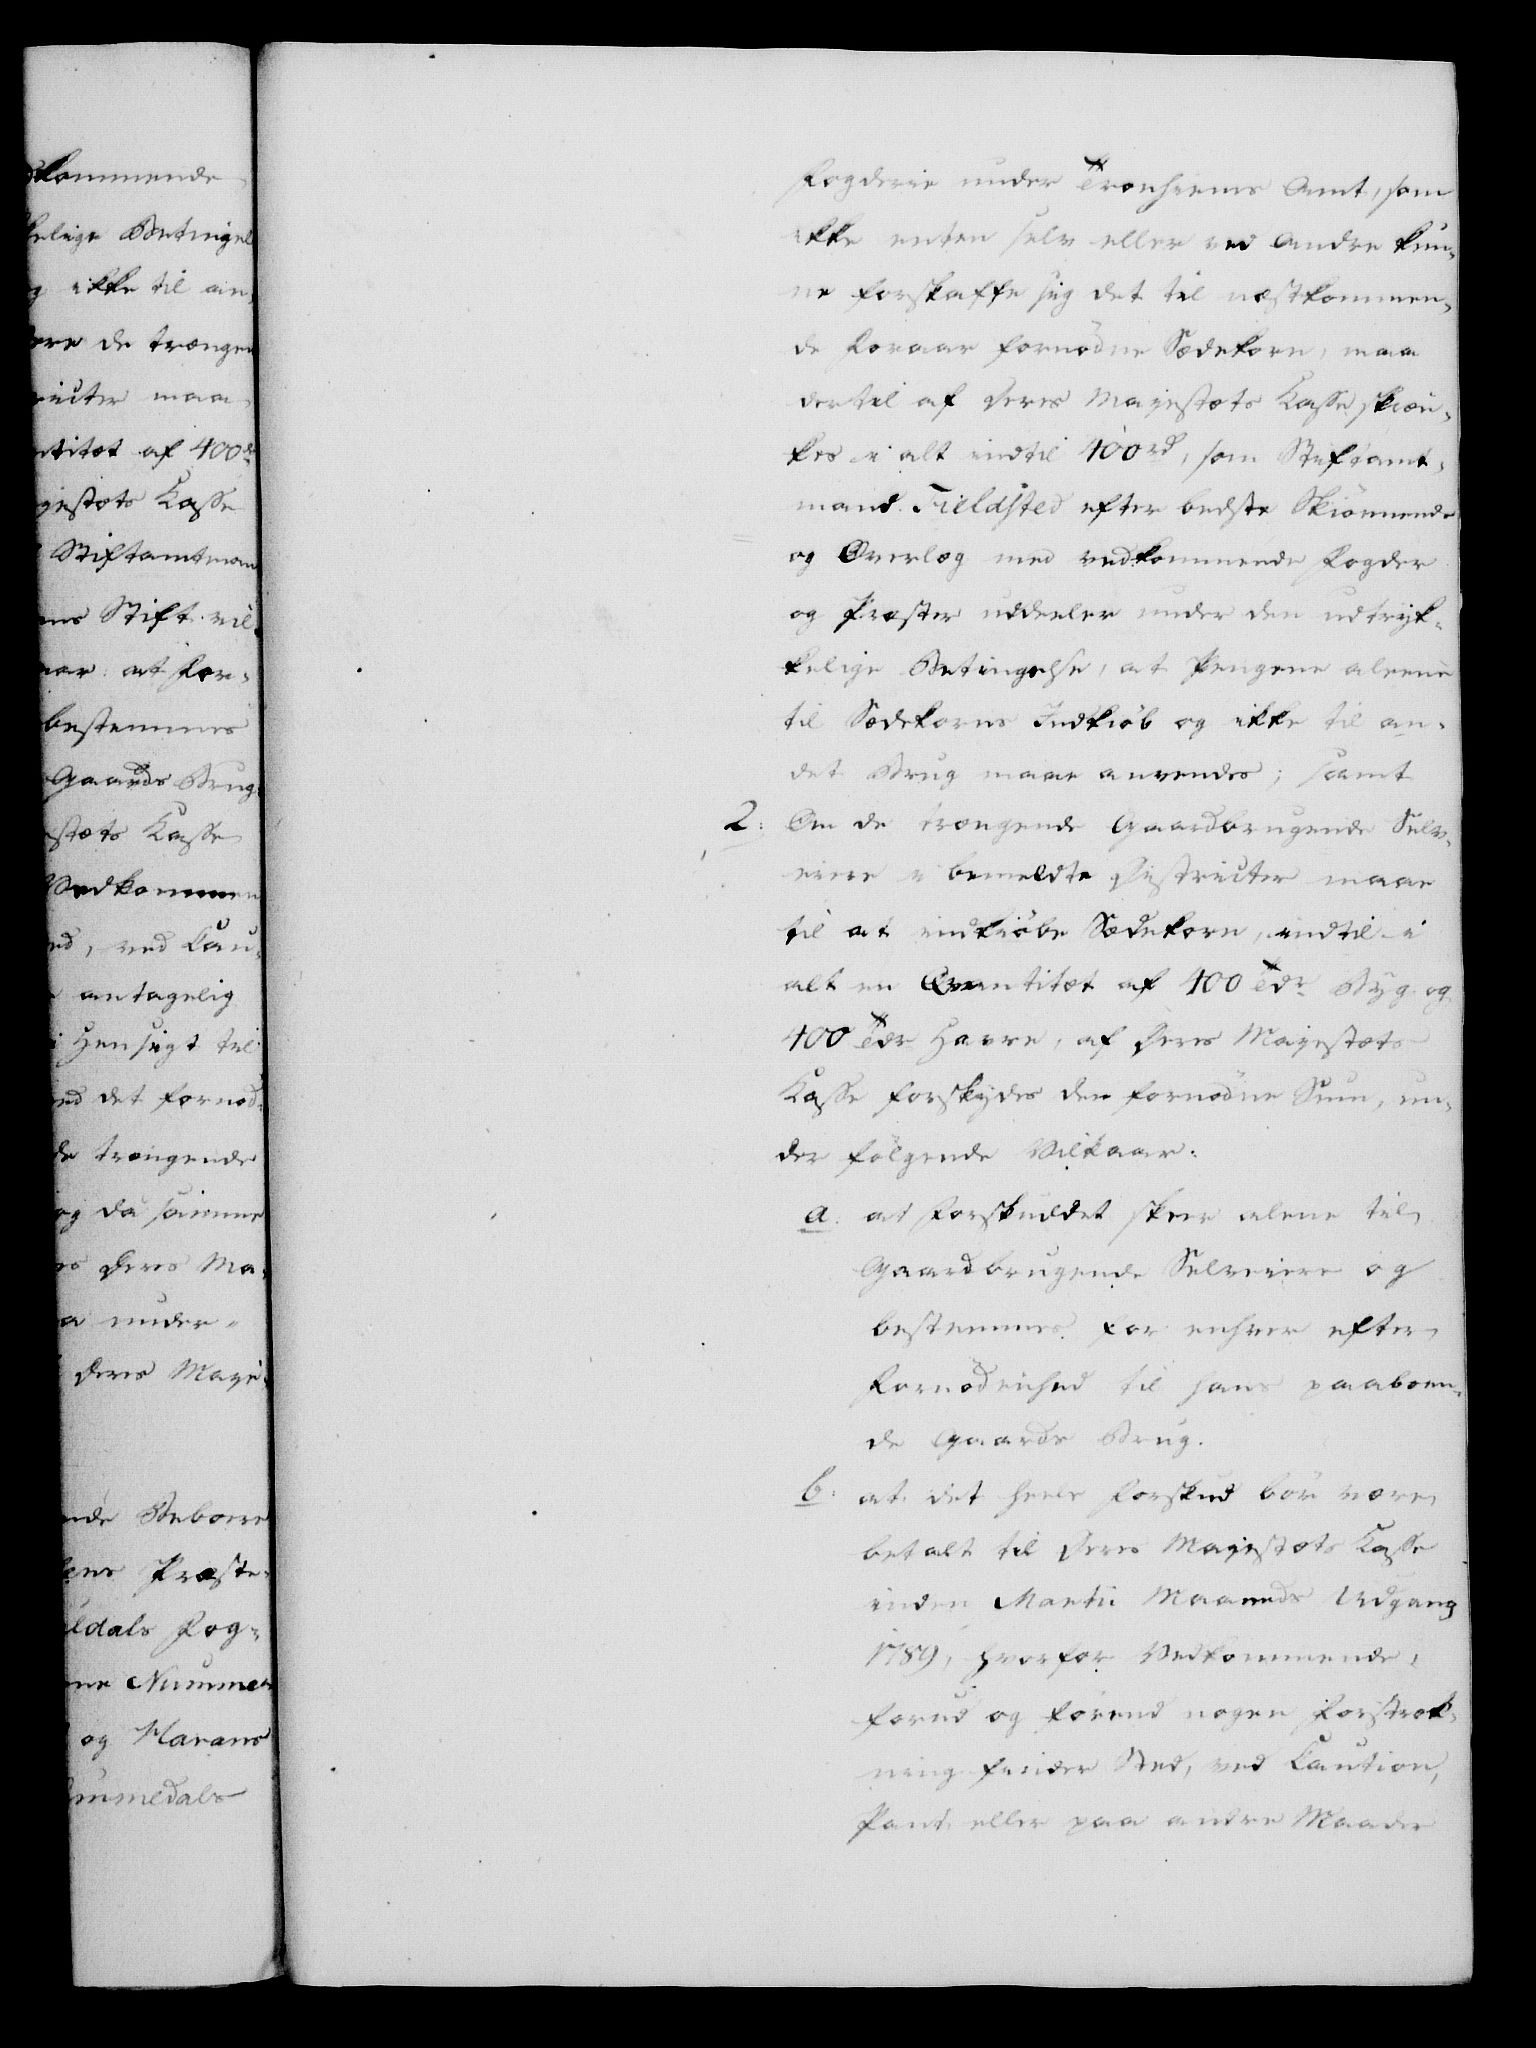 dkommende
kelige Betingel
g ikke til an,
ere de trængen
ricter maa,
ntitæt af 400 dr
gestæts Kasse
Stiftamtman
ens Stift vil,
aar: at For,
bestemmes
Gaards Brug,
stæts Kasse
Vedkommen
ed, ved Cau,
antagelig
i Hensigt til
end det fornød,
de trængende
og da samme
es Deres Ma,
a under,
Deres Maje,
ende Beboere
ens Præste,
ldals Fog,
ne Nummer
og Havans
ummedals
Fogderie under Tronhiems Amt, som
ikke enten selv eller ved Andre kun,
ne forskaffe sig det til næstkommen,
de Foraar fornødne Sædekorn, maa
dertil af Deres Majestæts Kasse skien,
kes i alt indtil 400 rd, som Stiftamt,
mand Fieldsted efter bedste Skiønnende
og Overlæg med vedkommende Fogder
og Præster uddeeler under den udtryk,
kelige Betingelse, at Pengene aleene
til Sædekorns Indkiøb og ikke til an,
det Brug maae anvendes; samt
2: At de trængende Gaardbrugende Selv,
eiere i bemeldte Districter maae
til at indkiøbe Sædekorn, indtil i
alt en Qvantitæt af 400 Tdr Byg og
400 Tdr Havre, af Deres Majestæts
Kasse forskydes den fornødne Sum, un,
der følgende Vilkaar:
a. at Forskuddet skeer alene til
Gaardbrugende Selveiere og
bestemmes for enhver efter
Fornødenhed til hans paaboen,
de Gaards Brug.
b: at det heele Forskud bør være
betalt til Deres Majestæts Kasse
inden Martii Maaneds Udgang
1789, hvorfor Vedkommende,
forud og førend nogen Forstræk,
ning finder Sted, ved Caution,
Pant eller paa andre Maader